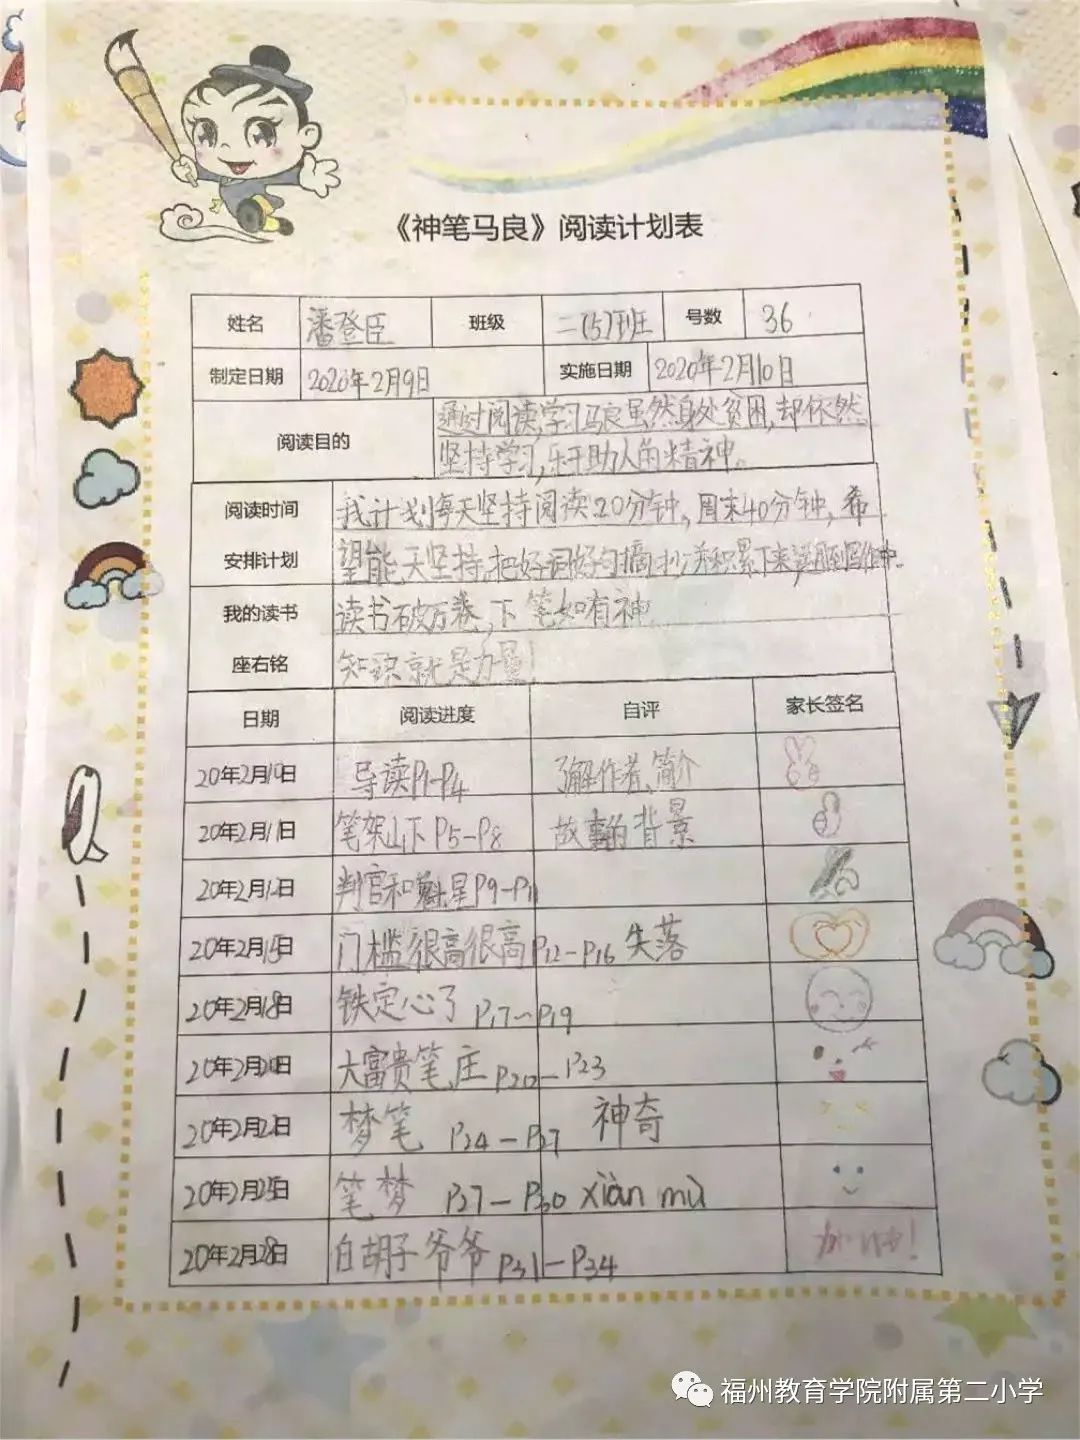 《神笔马良》阅读计划表
姓名 潘登臣 班级 二(5)班 号数 36
制定日期 2020年2月9日 实施日期 2020年2月10日
阅读目的 通过阅读,学习马良虽然身处贫困,却依然
坚持学习,乐于助人的精神。
阅读时间 我计划每天坚持阅读20分钟,周末40分钟,希
安排计划 望能天坚持。把好词好句摘抄并积累下来运用到写作中。
我的读书 读书破万卷,下笔如有神
座右铭 知识就是力量!
日期 阅读进度 自评 家长签名
20年2月10日 导读P1-P4 了解作者、简介
20年2月11日 笔架山下P5-P8 故事的背景
20年2月12日 判官和魁星P9-P11
20年2月15日 门槛很高很高P12-P16 失落
20年2月18日 铁定心了 P17-P19
20年2月20日 大富贵笔庄P20-P23
20年2月22日 梦笔 P24-P27 神奇
20年2月25日 笔梦 P27-P30 xiàn mù
20年2月28日 白胡子爷爷P31-P34 加油!
福州教育学院附属第二小学